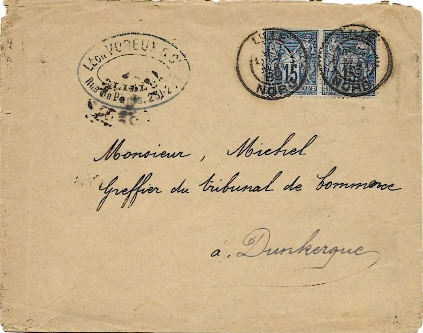 LÉON VOREUX & CIE
LILLE
Rue de Paris, 231-2
LILLE
NORD
15
NORD
Monsieur, Michel
Greffier du tribunal de Commerce
à, Dunkerque